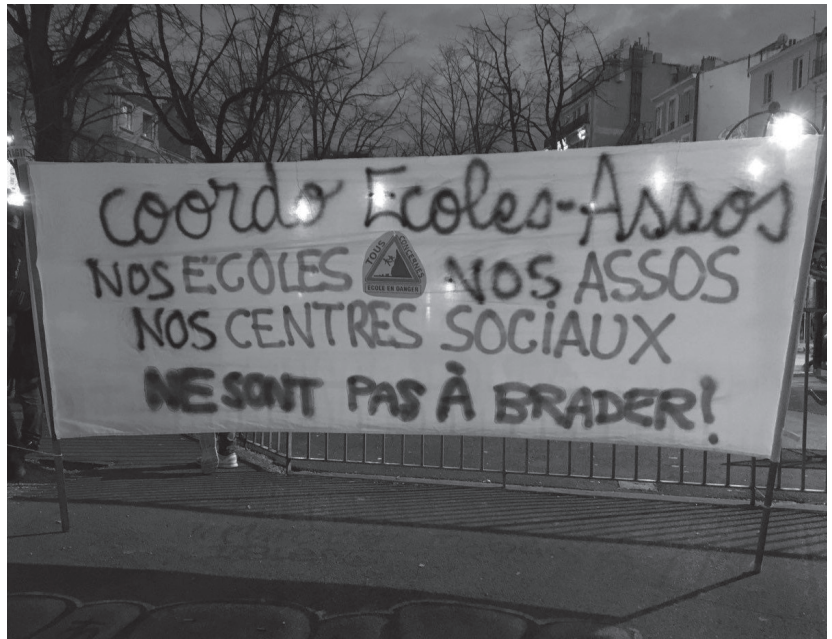 coordo Ecoles-Assos
NOS ECOLES NOS ASSOS
TOUS CONCERNÉS
ECOLE EN DANGER
NOS CENTRES SOCIAUX
NE SONT PAS À BRADER!